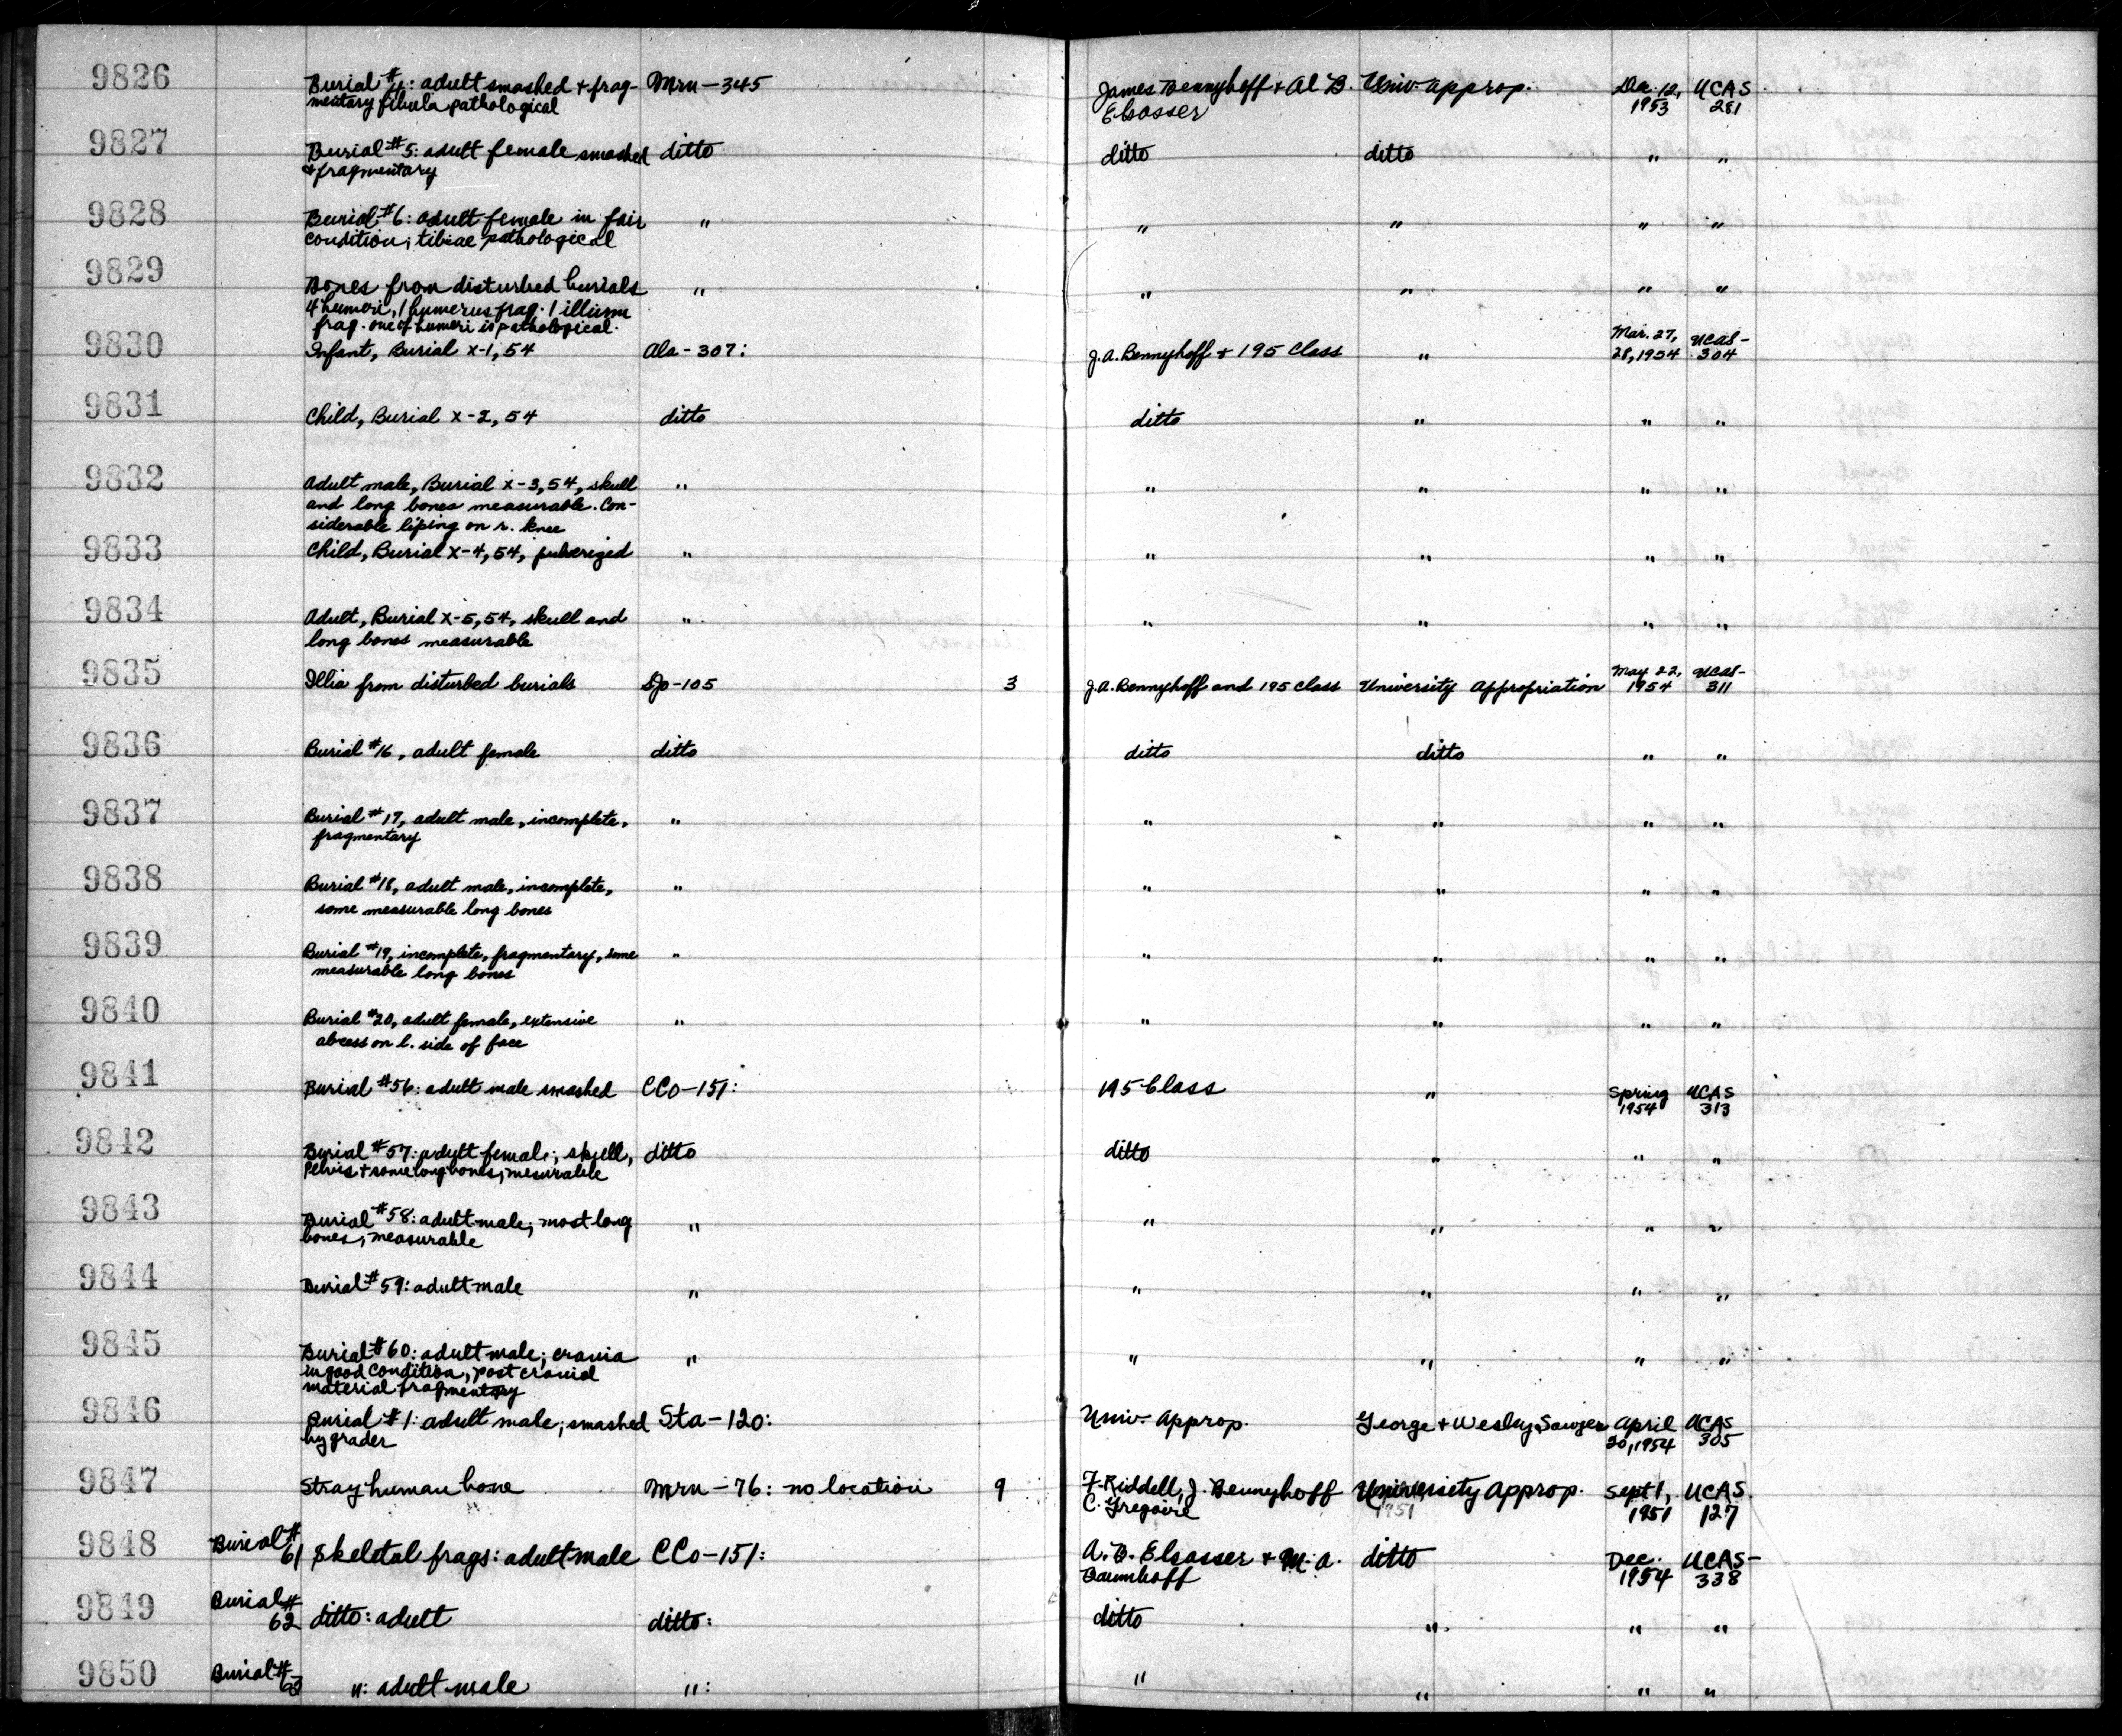 9826 Burial #4: adult smashed + frag- Mrn-345 James Bennyhoff + Al B. Univ. approp. Dec. 12, UCAS
mentary fibula pathological Elsasser 1953 281
9827 Burial #5: adult female smashed ditto ditto ditto " "
+ fragmentary
9828 Burial #6: adult female in fair " " " " "
condition; tibiae pathological
9829 Bones from disturbed burials " " " " "
4 humeri, 1 humerus frag. 1 illium
frag. one of humeri is pathological.
9830 Infant, Burial x-1, 54 Ala-307: J.A. Bennyhoff + 195 Class " Mar. 27, UCAS-
28, 1954 304
9831 Child, Burial x-2, 54 ditto ditto " " "
9832 Adult male, Burial x-3, 54, skull " " " " "
and long bones measurable. Con-
siderable liping on r. knee
9833 Child, Burial x-4, 54, pulverized " " " " "
9834 Adult, Burial x-5, 54, skull and " " " " "
long bones measurable
9835 Illia from disturbed burials SJo-105 3 J.A. Bennyhoff and 195 class University Appropriation May 22, UCAS-
1954 311
9836 Burial #16, adult female ditto ditto ditto " "
9837 Burial #17, adult male, incomplete, " " " " "
fragmentary
9838 Burial #18, adult male, incomplete, " " " " "
some measurable long bones
9839 Burial #19, incomplete, fragmentary, some " " " " "
measurable long bones
9840 Burial #20, adult female, extensive " " " " "
abcess on l. side of face
9841 Burial #56: adult male smashed CCo-151: 195 Class " Spring UCAS
1954 313
9842 Burial #57: adult female; skull, ditto ditto " " "
Pelvis + some long bones; mesurable
9843 Burial #58: adult male; most long " " " " "
bones; measurable
9844 Burial #59: adult male " " " " "
9845 Burial #60: adult male; crania " " " " "
in good condition, post cranial
material fragmentary
9846 Burial #1: adult male; smashed Sta-120: Univ. Approp. George + Wesley Sawyer April UCAS
by grader 30, 1954 305
9847 Stray human bone Mrn-76: no location 9 F. Riddell, J. Bennyhoff University Approp. Sept 1, UCAS
C. Gregoire 1951 1951 127
9848 Burial # 61 Skeletal frags: adult male CCo-151: A.B. Elsasser + M.A. ditto Dec. UCAS-
Baumhoff 1954 338
9849 Burial # 62 ditto: adult ditto: ditto " " "
9850 Burial # 63 ": adult male ": " " " "